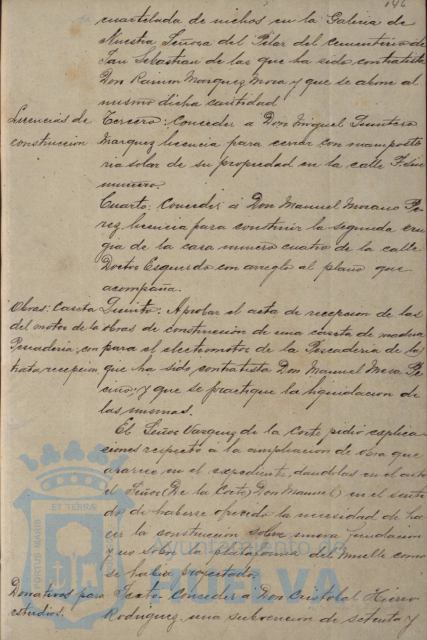 146
cuartelada de nichos en la Galeria de
Nuestra Señora del Pilar del cementerio de
San Sebastian de las que ha sido contratista
Don Ramon Marquez Mora y que se abone al
mismo dicha cantidad
Licencias de construccion
Tercero: Conceder a Don Miguel Quintero
Marquez licencia para cerrar con mamposte
ria solar de su propiedad en la calle F. sin
numero.
Cuarto: Conceder á Don Manuel Morano Pe
rez, licencia para construir la segunda cru
gia de la casa numero cuatro de la calle
Doctor Esquerdo con arreglo al plano que
acompaña.
Obras: Caseta
del motor de la
Pescaderia, con
trata recepcion
Quinto: Aprobar el acta de recepcion de las
obras de construccion de una caseta de madera
para el electromotor de la Pescaderia de las
que ha sido contratista Don Manuel Mesa Pe
ciño: y que se practique la liquidacion de
las mismas.
El Señor Vazquez de la Corte pidió explica-
ciones respecto á la ampliacion de obra que
aparece en el expediente, dandolas en el acto
el Señor (De la Corte) Don Manuel) en el senti
do de haberse ofrecido la necesidad de ha
cer la construccion sobre nueva fundacion
y no sobre la plataforma del Muelle como
se habia proyectado.
Donativos para
estudios.
Sexto: Conceder á Don Cristobal Hierro
Rodriguez una subvencion de setenta y
PORTUS MARIS
ET TERRAE
Ayuntamiento de
HUELVA